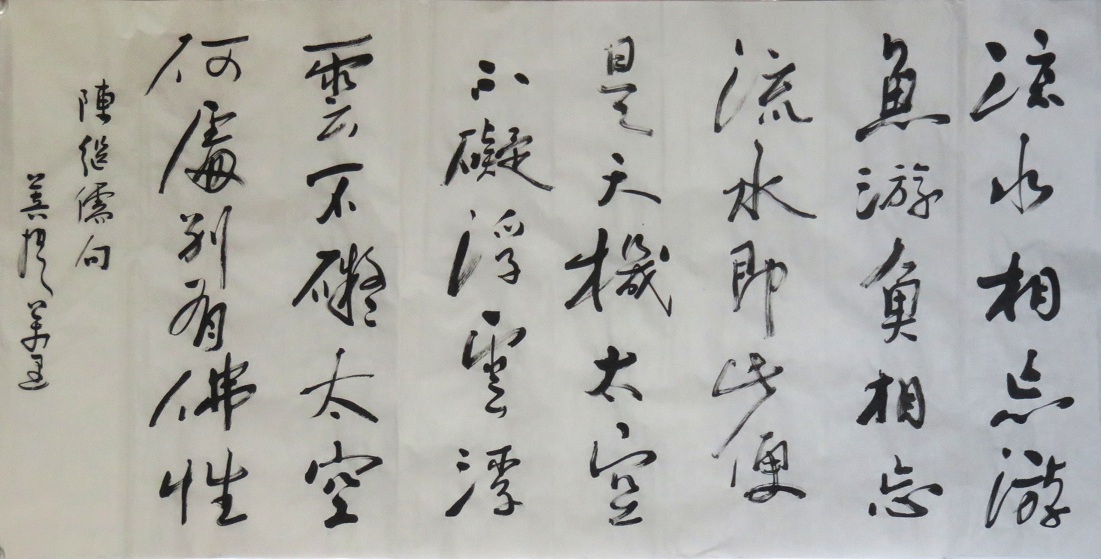 流水相忘游
魚游魚相忘
流水即此便
是天機太空
不礙浮雲浮
雲不礙太空
何處別有佛性
陳繼儒句